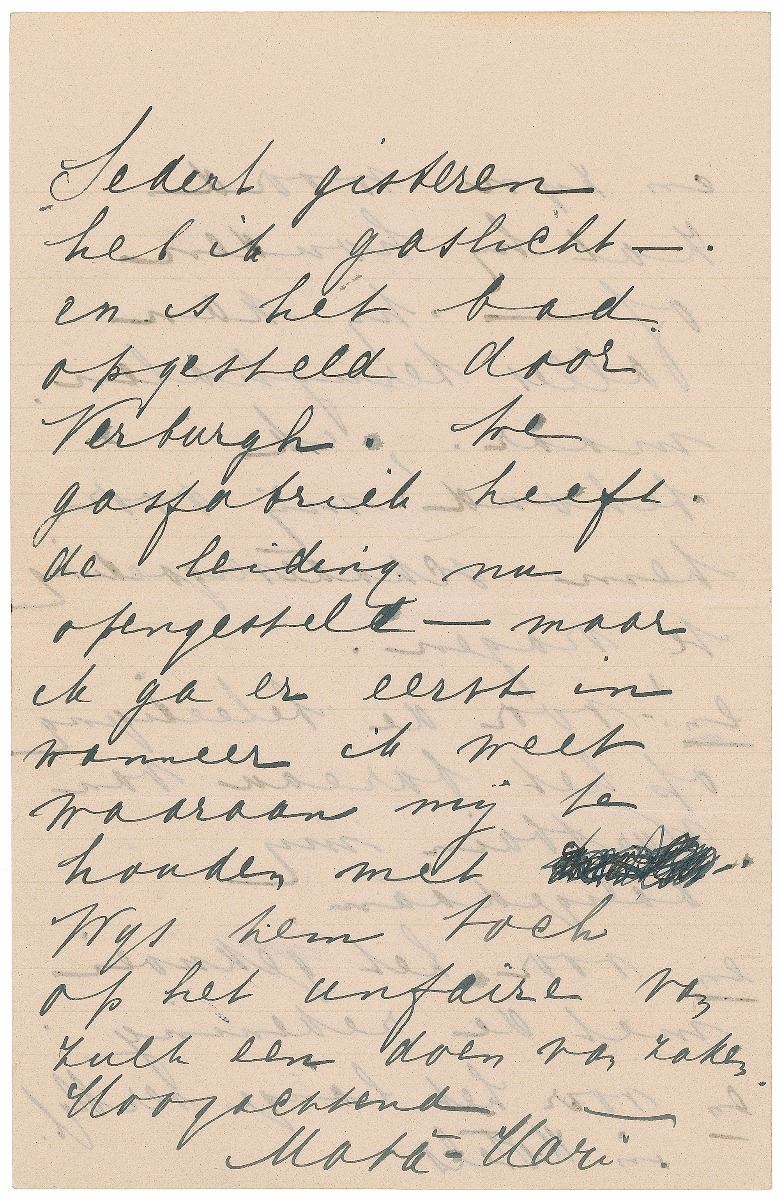 Sedert gisteren
heb ik gaslicht —.
en is het bad
opgesteld door
Verburgh. De
gasfabriek heeft.
de leiding nu
opengesteld — maar
ik ga er eerst in
wanneer ik weet
waaraan mij te
houden met
Wys hem toch
op het unfaire van
zulk een doen van zaken.
Hoogachtend
Mata-Hari.